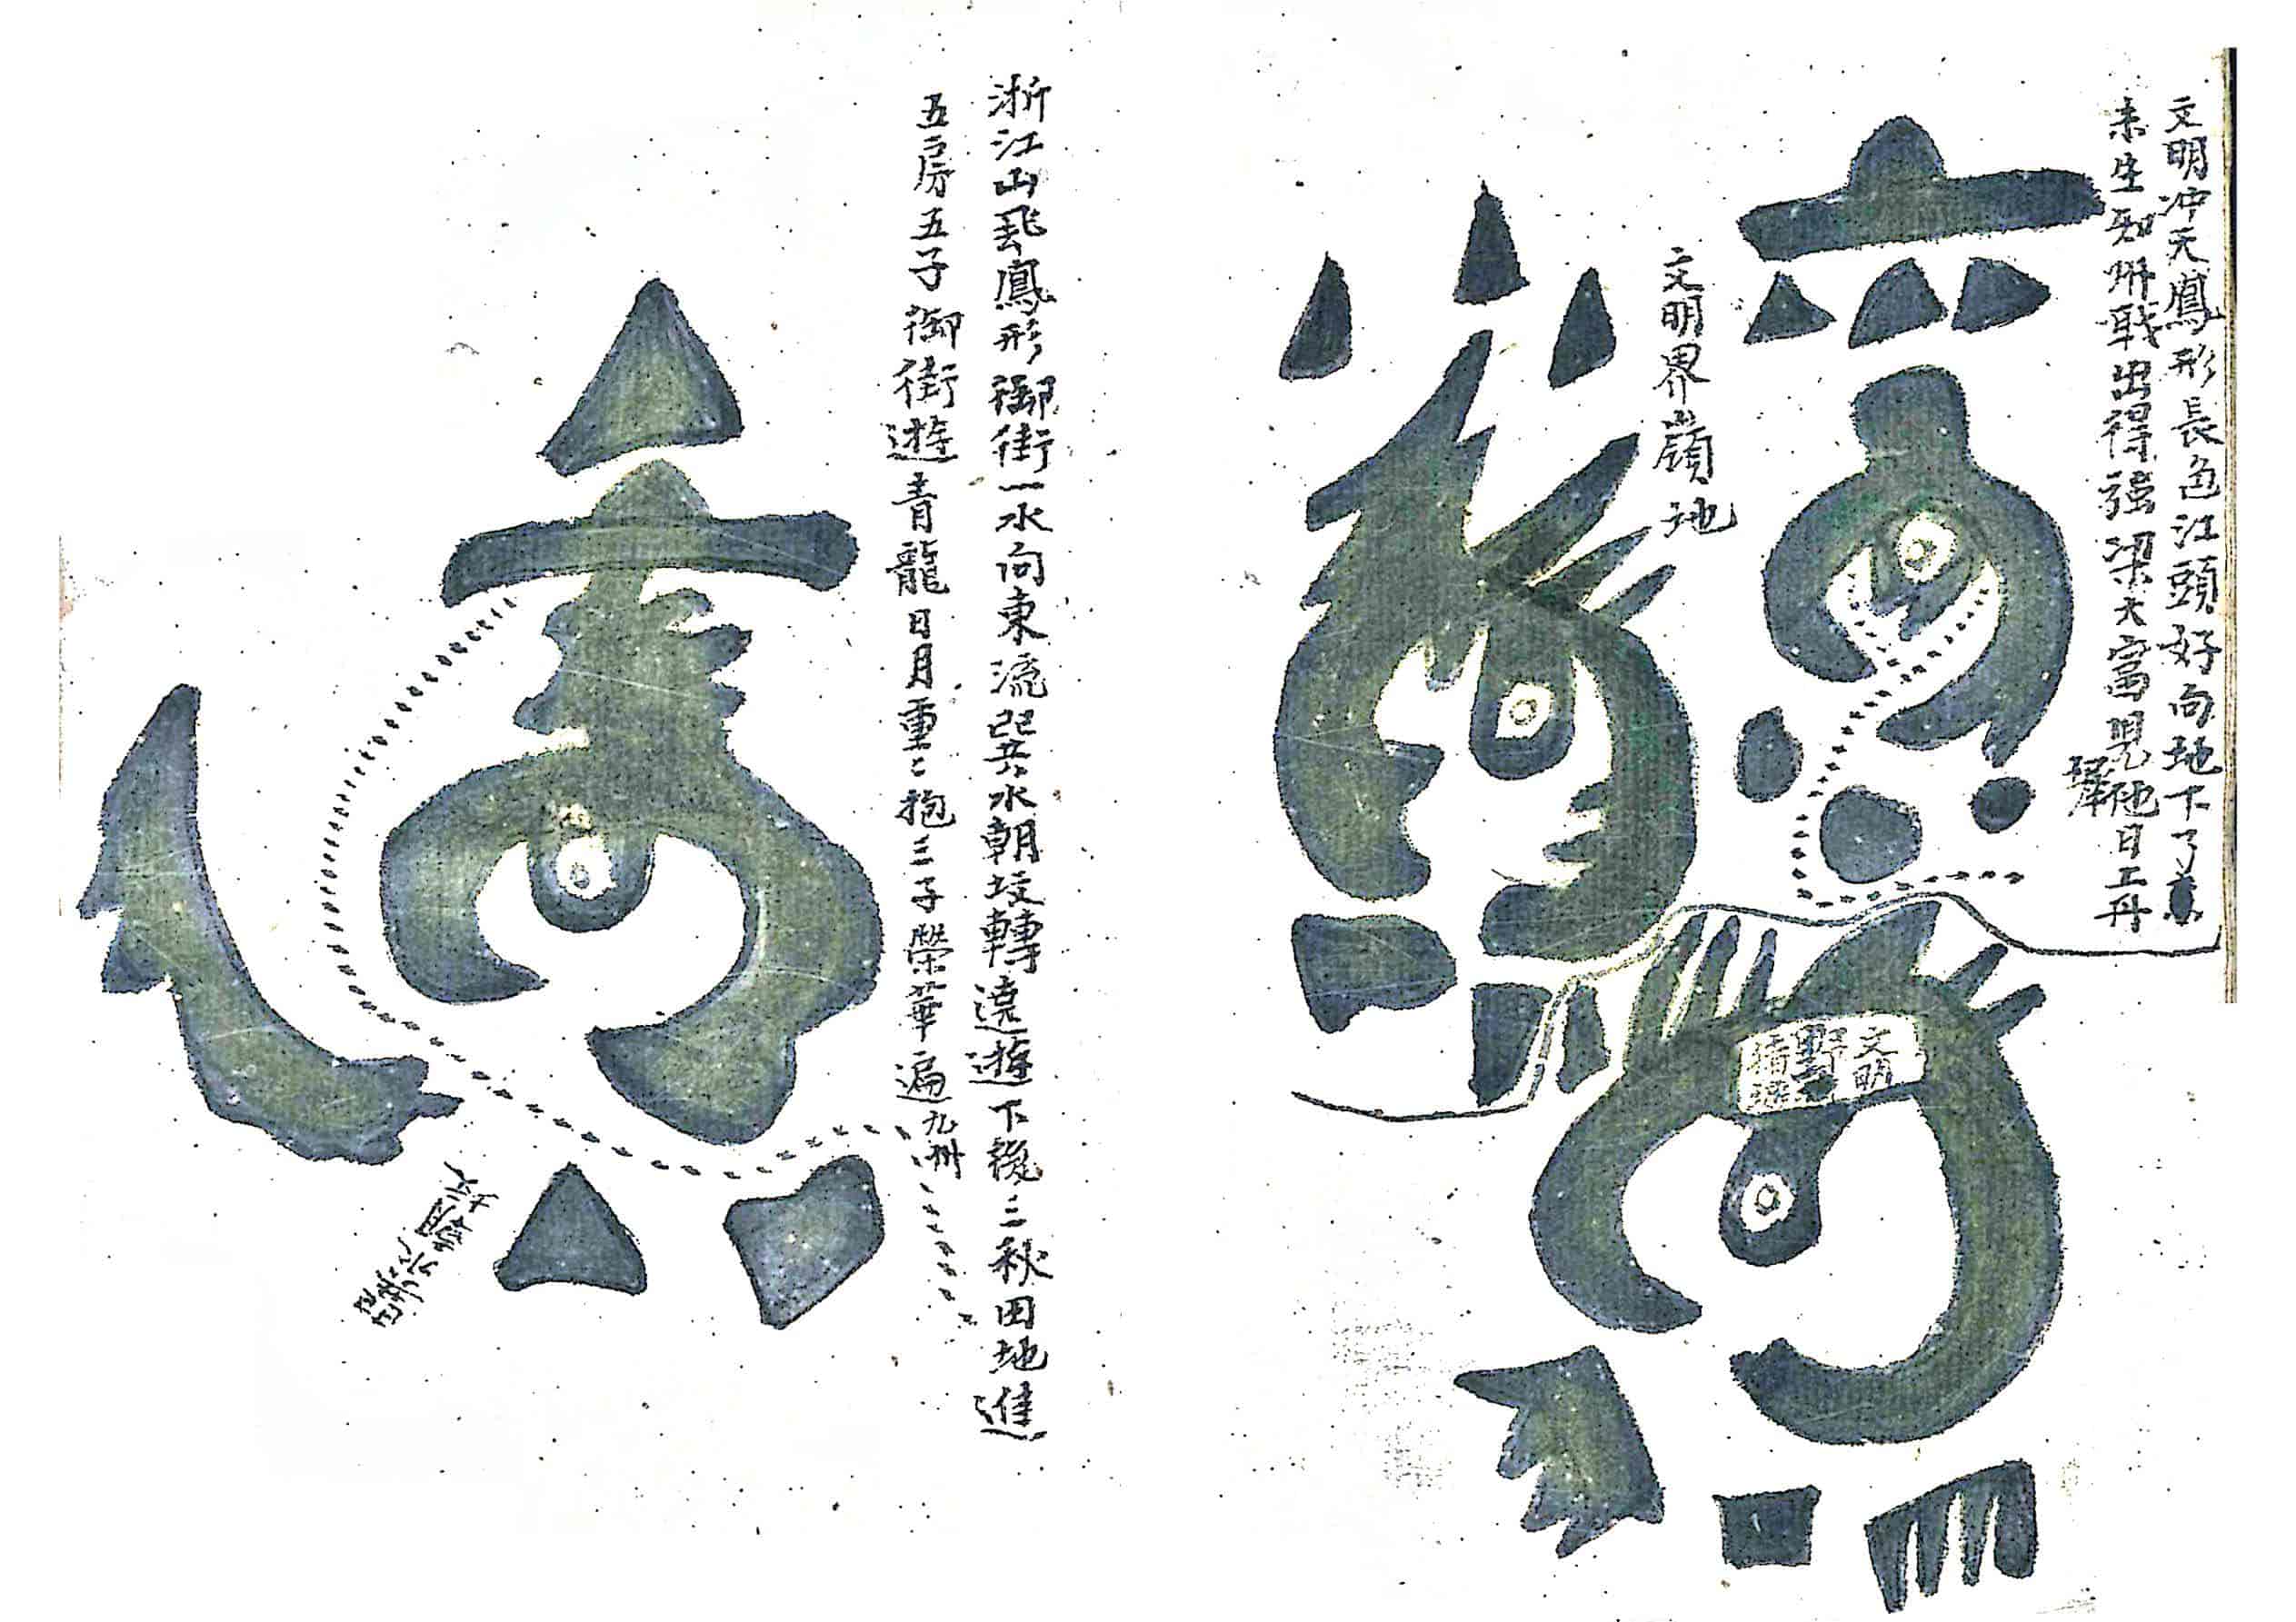 文明冲天鳳形長色江頭好向地下了
未生知 戰出得強梁大富 他日工丹
文明界嶺地
文明
野
浙江山飛鳳形御街一水向東流巽水朝坟轉遠遊下後三秋田地進
五房五子御街遊青龍日月重〻抱三子榮華遍九州
巽水朝